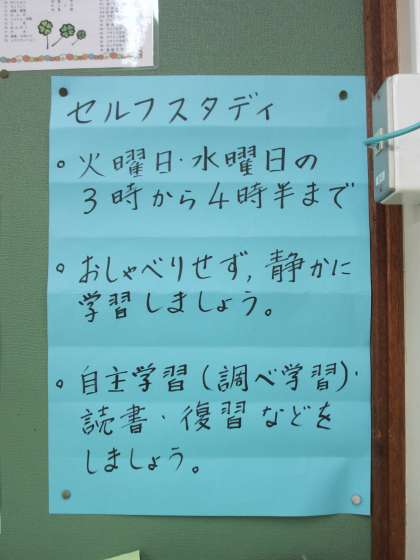 セルフスタディ
。火曜日・水曜日の
３時から４時半まで
。おしゃべりせず，静かに
学習しましょう。
。自主学習（調べ学習）・
読書・復習などを
しましょう。